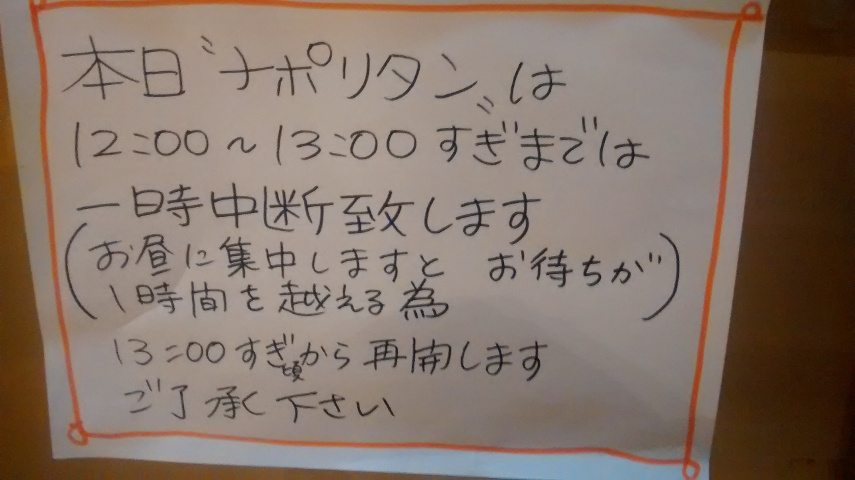 本日〝ナポリタン〟は
12:00～13:00すぎまでは
一時中断致します
(お昼に集中しますと お待ちが
1時間を越える為)
13:00すぎ頃から再開します
ご了承く下さい